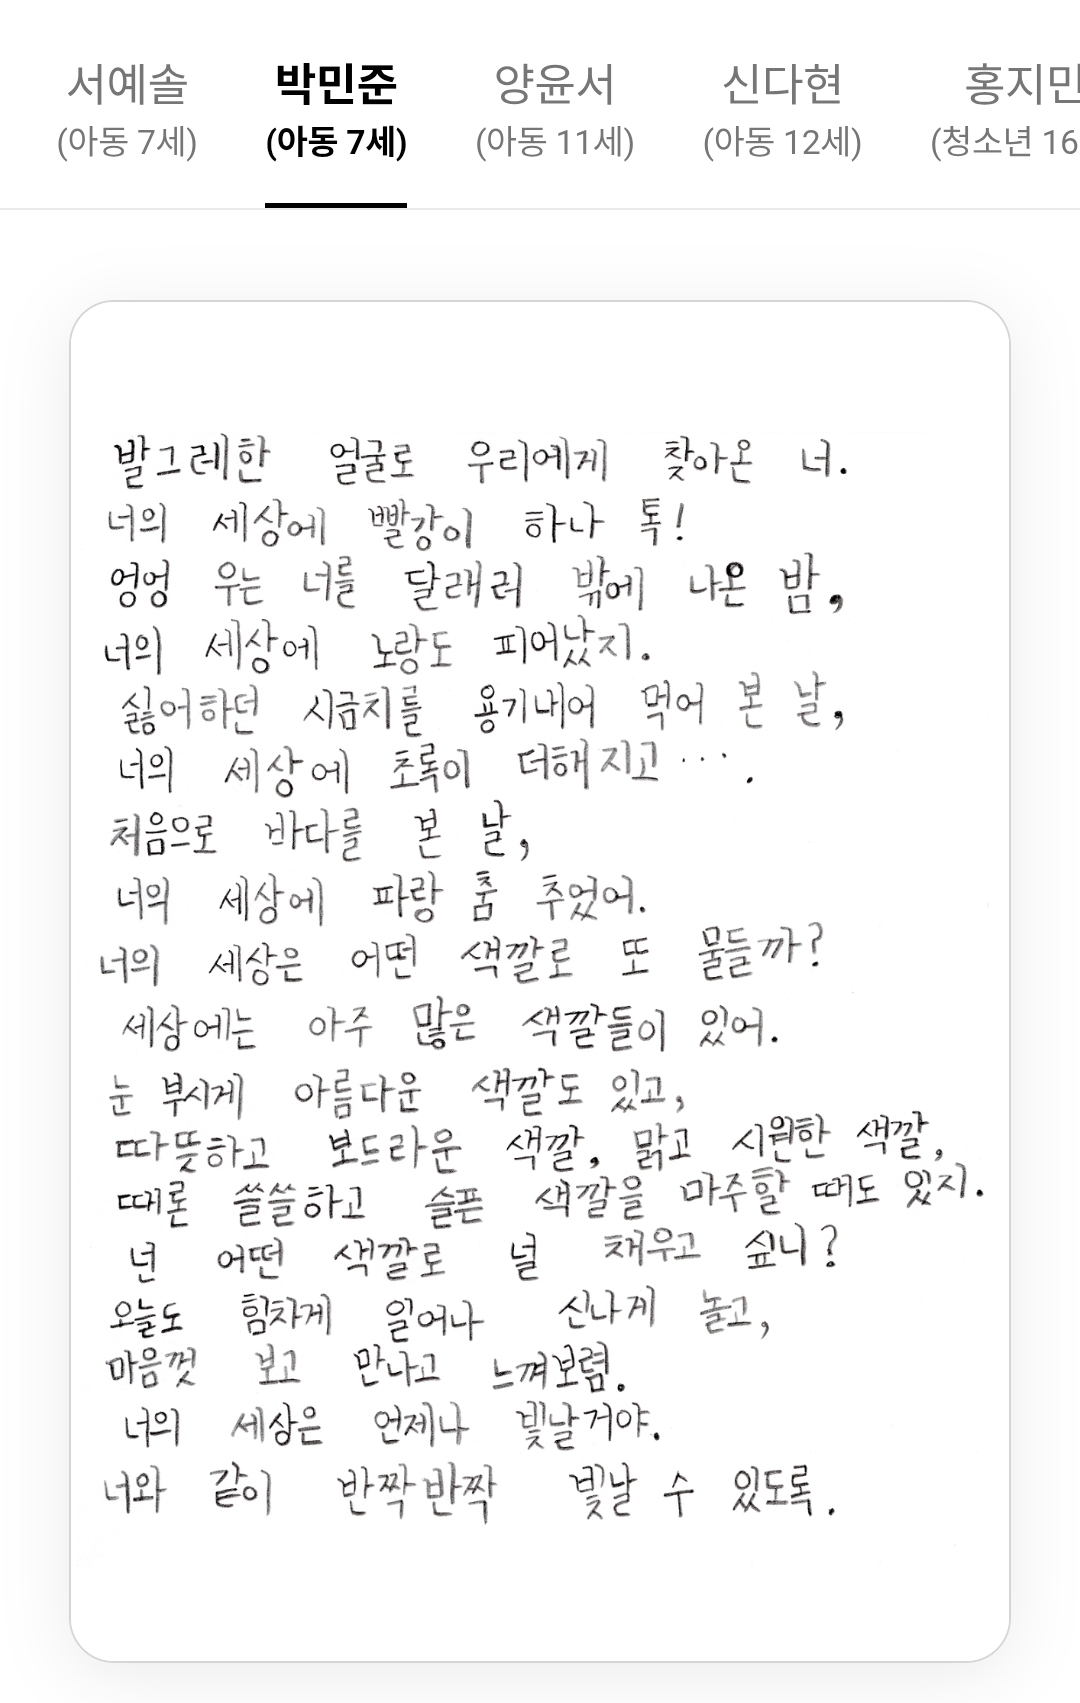 서예솔 박민준 양윤서 신다현 홍지민
(아동 7세) (아동 7세) (아동 11세) (아동 12세) (청소년 16
발그레한 얼굴로 우리에게 찾아온 너.
너의 세상에 빨강이 하나 톡!
엉엉 우는 너를 달래러 밖에 나온 밤,
너의 세상에 노랑도 피어났지.
싫어하던 시금치를 용기내어 먹어 본 날,
너의 세상에 초록이 더해지고 ··· .
처음으로 바다를 본 날,
너의 세상에 파랑 춤 추었어.
너의 세상은 어떤 색깔로 또 물들까?
세상에는 아주 많은 색깔들이 있어.
눈 부시게 아름다운 색깔도 있고,
따뜻하고 보드라운 색깔, 맑고 시원한 색깔,
때론 쓸쓸하고 슬픈 색깔을 마주할 때도 있지.
넌 어떤 색깔로 널 채우고 싶니?
오늘도 힘차게 일어나 신나게 놀고,
마음껏 보고 만나고 느껴보렴.
너의 세상은 언제나 빛날거야.
너와 같이 반짝반짝 빛날 수 있도록.